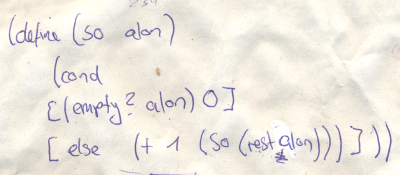 (define (so alon)
(cond
[(empty? alon) 0]
[else (+ 1 (so (rest alon)))]))